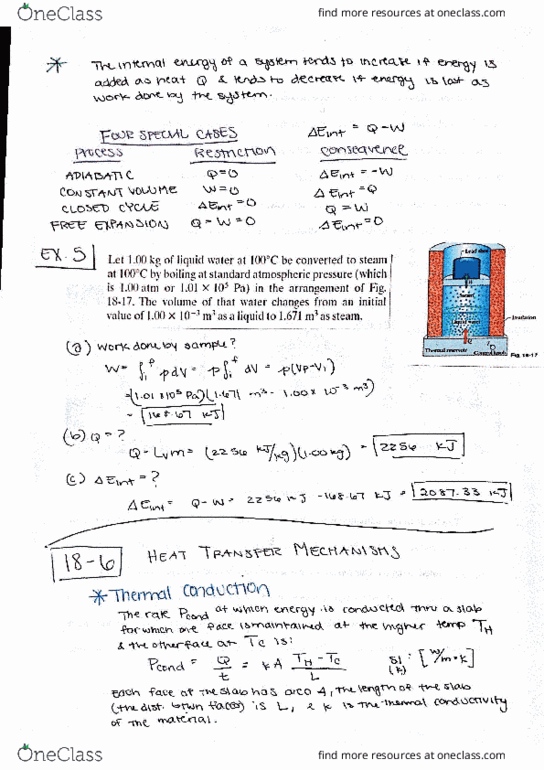 OneClass
find more resources at oneclass.com
* The internal energy of a system tends to increase if energy is
added as heat Q & tends to decrease if energy is lost as
work done by the system.
FOUR SPECIAL CASES ΔEint = Q-W
PROCESS RESTRICTION CONSEQUENCE
ADIABATIC Q=0 ΔEint = -W
CONSTANT VOLUME W=0 ΔEint = Q
CLOSED CYCLE ΔEint = 0 Q = W
FREE EXPANSION Q-W=0 ΔEint = 0
EX. 5
Let 1.00 kg of liquid water at 100°C be converted to steam
at 100°C by boiling at standard atmospheric pressure (which
is 1.00 atm or 1.01 × 10⁵ Pa) in the arrangement of Fig.
18-17. The volume of that water changes from an initial
value of 1.00 × 10⁻³ m³ as a liquid to 1.671 m³ as steam.
Lead shot
Insulation
Thermal reservoir
Fig. 18-17
(a) work done by sample?
W = ∫ᵢᶠ pdV = p∫ᵢᶠ dV = p(VF-Vi)
=(1.01 x10⁵ Pa)(1.671 m³ - 1.00 x 10⁻³ m³)
= 168.67 KJ
(b) Q = ?
Q = Lvm = (2256 KJ/kg)(1.00kg) = 2256 KJ
(c) ΔEint = ?
ΔEint = Q-W = 2256 KJ - 168.67 KJ = 2087.33 KJ
18-6 HEAT TRANSFER MECHANISMS
* Thermal conduction
The rate Pcond at which energy is conducted thru a slab
for which one face is maintained at the higher temp TH
& the other face at Tc is:
Pcond = Q/t = kA (TH - Tc)/L SI (k) : [W/m·k]
Each face of the slab has area A, the length of the slab
(the dist. btwn faces) is L, & k is the thermal conductivity
of the material.
OneClass
find more resources at oneclass.com